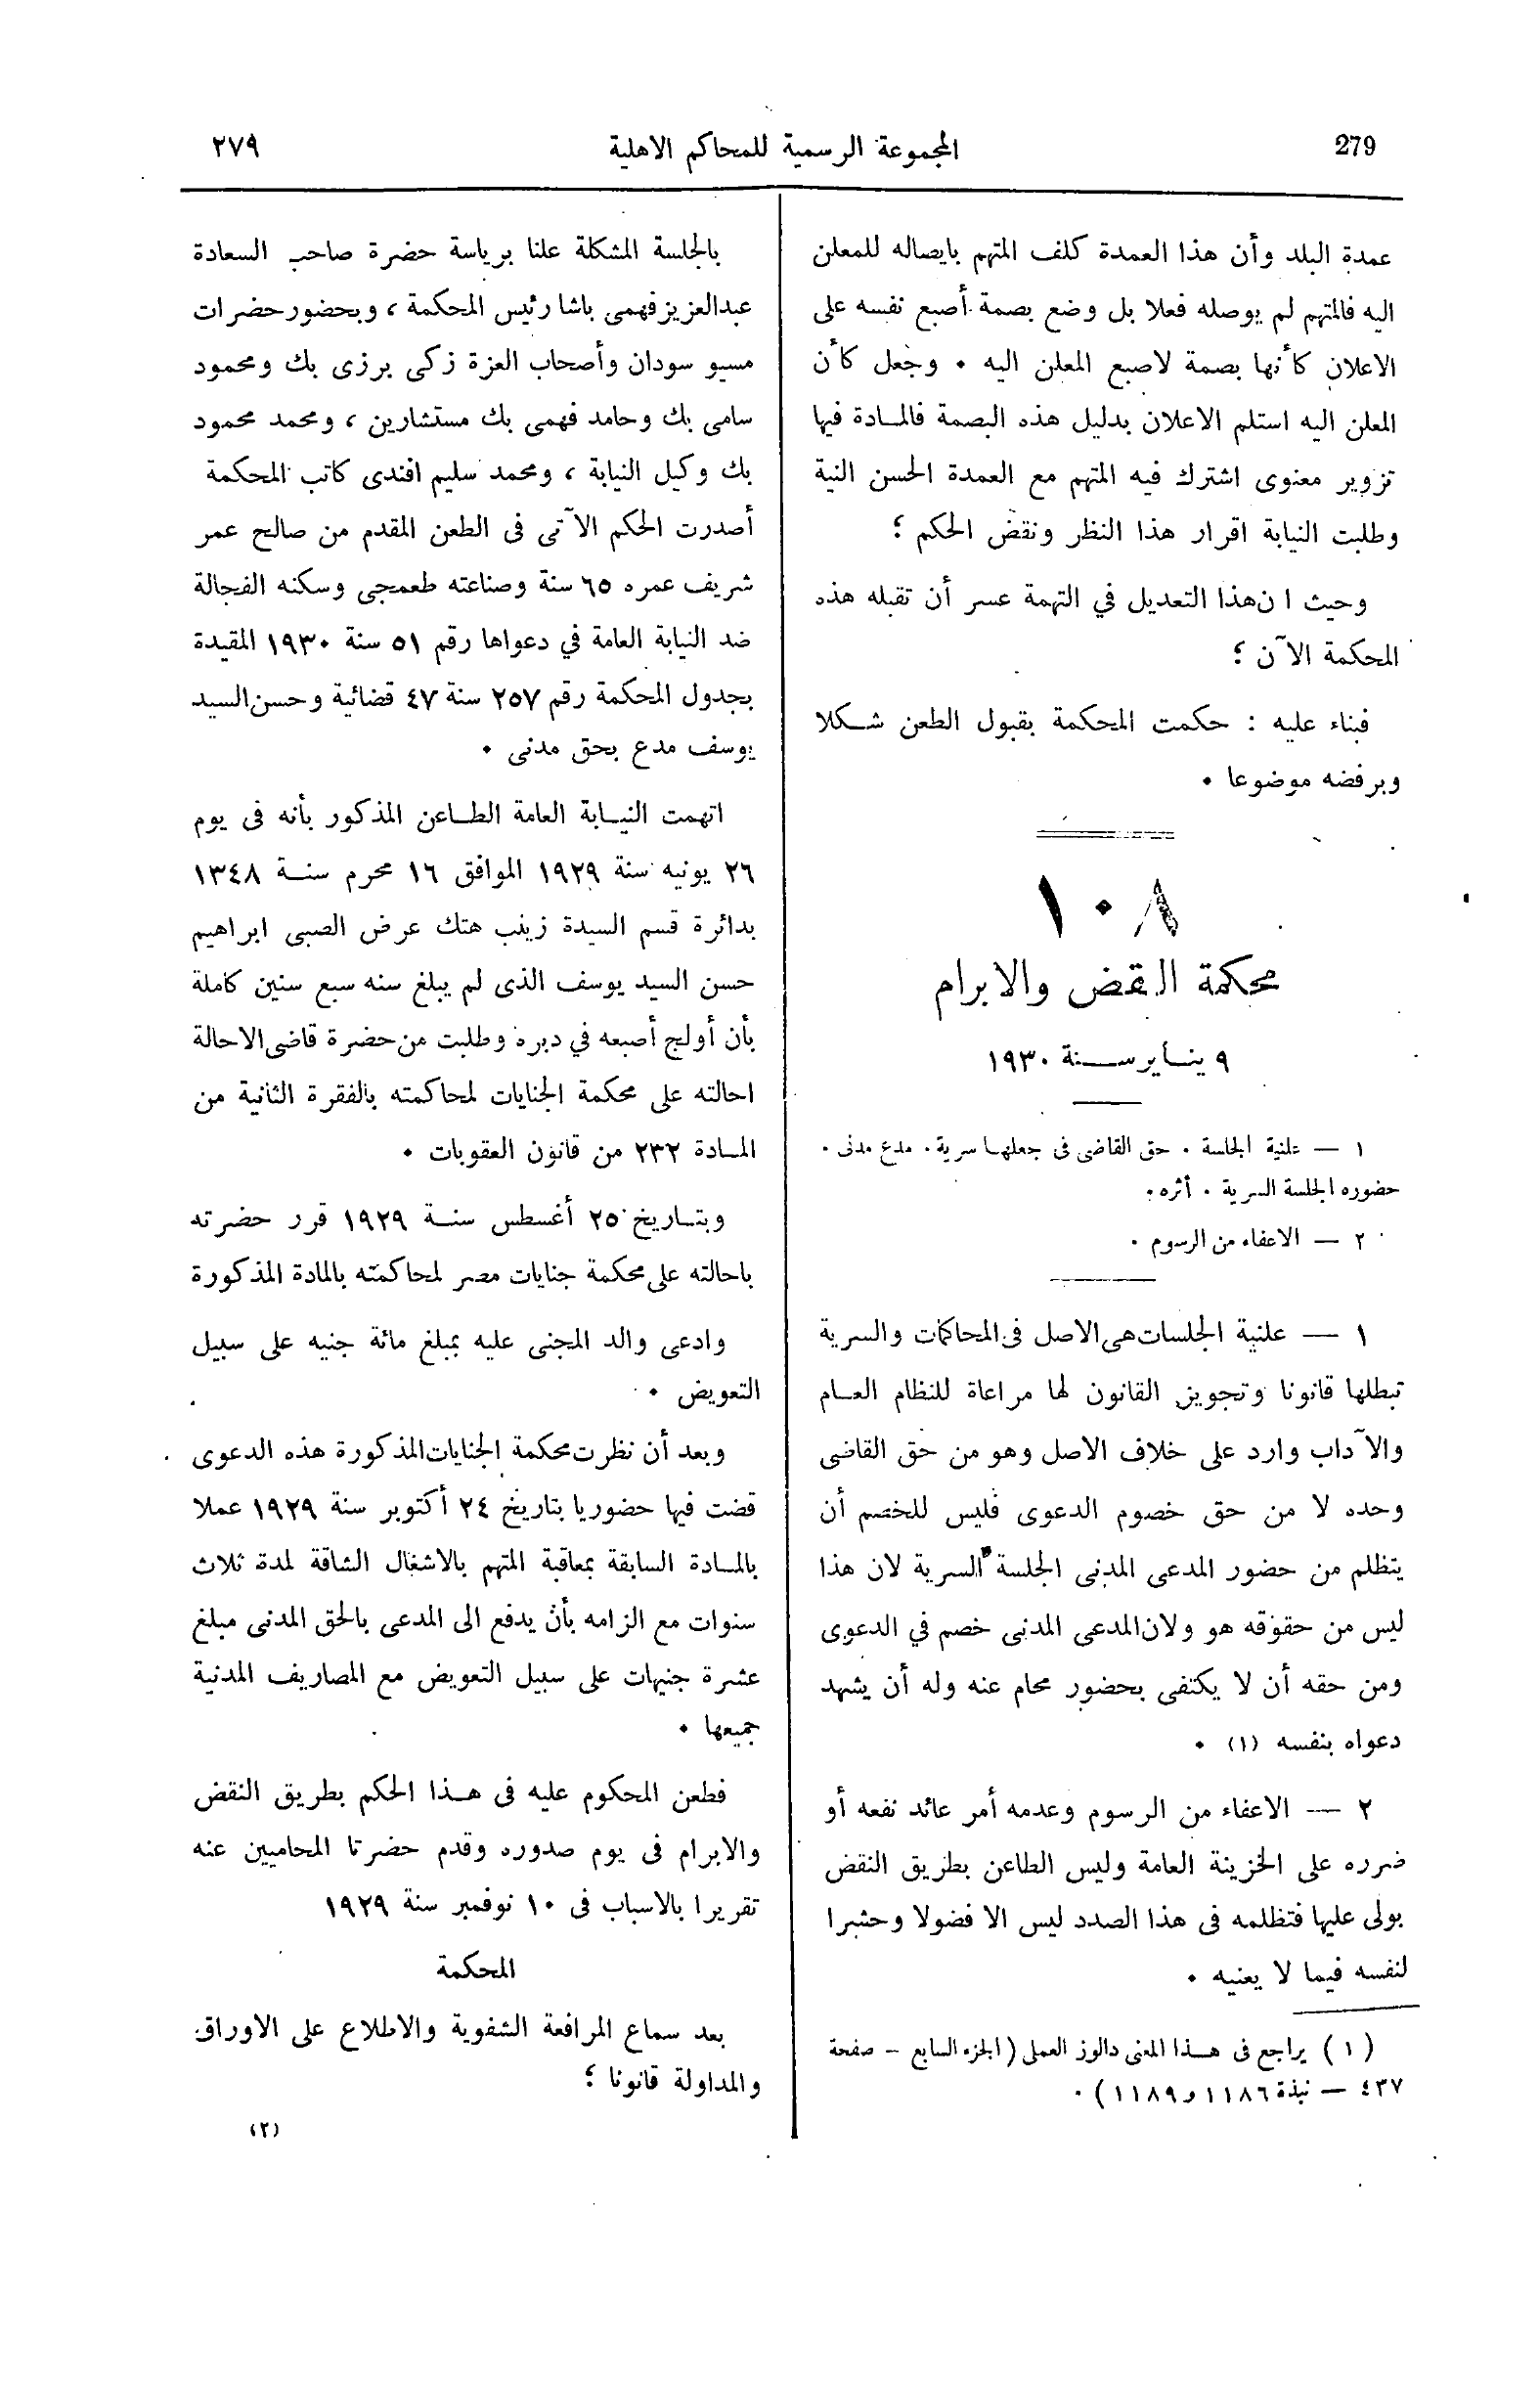 279
المجموعة الرسمية للمحاكم الاهلية
٢٧٩
عمدة البلد وأن هذا العمدة كلف المتهم بايصاله للمعلن
اليه فالمتهم لم يوصله فعلا بل وضع بصمة أصبع نفسه على
الاعلان كأنها بصمة لاصبع المعلن اليه . وجعل كأن
المعلن اليه استلم الاعلان بدليل هذه البصمة فالمادة فيها
تزوير معنوى اشترك فيه المتهم مع العمدة الحسن النية
وطلبت النيابة اقرار هذا النظر ونقض الحكم ؛
وحيث ان هذا التعديل في التهمة عسر أن تقبله هذه
المحكمة الآن ؛
فبناء عليه : حكمت المحكمة بقبول الطعن شكلا
وبرفضه موضوعا .
١٠٨
محكمة النقض والابرام
٩ يناير سنة ١٩٣٠
١ — علنية الجلسة . حق القاضى فى جعلها سرية . مدع مدنى .
حضوره الجلسة السرية . أثره .
٢ — الاعفاء من الرسوم .
١ — علنية الجلسات هى الاصل فى المحاكمات والسرية
تبطلها قانونا وتجويز القانون لها مراعاة للنظام العام
والآداب وارد على خلاف الاصل وهو من حق القاضى
وحده لا من حق خصوم الدعوى فليس للخصم أن
يتظلم من حضور المدعى المدنى الجلسة السرية لان هذا
ليس من حقوقه هو ولان المدعى المدنى خصم في الدعوى
ومن حقه أن لا يكتفى بحضور محام عنه وله أن يشهد
دعواه بنفسه (١) .
٢ — الاعفاء من الرسوم وعدمه أمر عائد نفعه أو
ضرره على الخزينة العامة وليس الطاعن بطريق النقض
بولى عليها فتظلمه فى هذا الصدد ليس الا فضولا وحشرا
لنفسه فيما لا يعنيه .
(١) يراجع فى هذا المعنى دالوز العملى (الجزء السابع – صفحة
٤٣٧ — نبذة ١١٨٦ و ١١٨٩) .
بالجلسة المشكلة علنا برياسة حضرة صاحب السعادة
عبدالعزيز فهمى باشا رئيس المحكمة ، وبحضور حضرات
مسيو سودان وأصحاب العزة زكى برزى بك ومحمود
سامى بك وحامد فهمى بك مستشارين ، ومحمد محمود
بك وكيل النيابة ، ومحمد سليم افندى كاتب المحكمة
أصدرت الحكم الآتى فى الطعن المقدم من صالح عمر
شريف عمره ٦٥ سنة وصناعته طعمجى وسكنه الفجالة
ضد النيابة العامة في دعواها رقم ٥١ سنة ١٩٣٠ المقيدة
بجدول المحكمة رقم ٢٥٧ سنة ٤٧ قضائية وحسن السيد
يوسف مدع بحق مدنى .
اتهمت النيابة العامة الطاعن المذكور بأنه فى يوم
٢٦ يونيه سنة ١٩٢٩ الموافق ١٦ محرم سنة ١٣٤٨
بدائرة قسم السيدة زينب هتك عرض الصبى ابراهيم
حسن السيد يوسف الذى لم يبلغ سنه سبع سنين كاملة
بأن أولج أصبعه في دبره وطلبت من حضرة قاضى الاحالة
احالته على محكمة الجنايات لمحاكمته بالفقرة الثانية من
المادة ٢٣٢ من قانون العقوبات .
وبتاريخ ٢٥ أغسطس سنة ١٩٢٩ قرر حضرته
باحالته على محكمة جنايات مصر لمحاكمته بالمادة المذكورة
وادعى والد المجنى عليه بمبلغ مائة جنيه على سبيل
التعويض .
وبعد أن نظرت محكمة الجنايات المذكورة هذه الدعوى
قضت فيها حضوريا بتاريخ ٢٤ أكتوبر سنة ١٩٢٩ عملا
بالمادة السابقة بمعاقبة المتهم بالاشغال الشاقة لمدة ثلاث
سنوات مع الزامه بأن يدفع الى المدعى بالحق المدنى مبلغ
عشرة جنيهات على سبيل التعويض مع المصاريف المدنية
جميعها .
فطعن المحكوم عليه فى هذا الحكم بطريق النقض
والابرام فى يوم صدوره وقدم حضرتا المحاميين عنه
تقريرا بالاسباب فى ١٠ نوفمبر سنة ١٩٢٩
المحكمة
بعد سماع المرافعة الشفوية والاطلاع على الاوراق
والمداولة قانونا ؛
(٢)